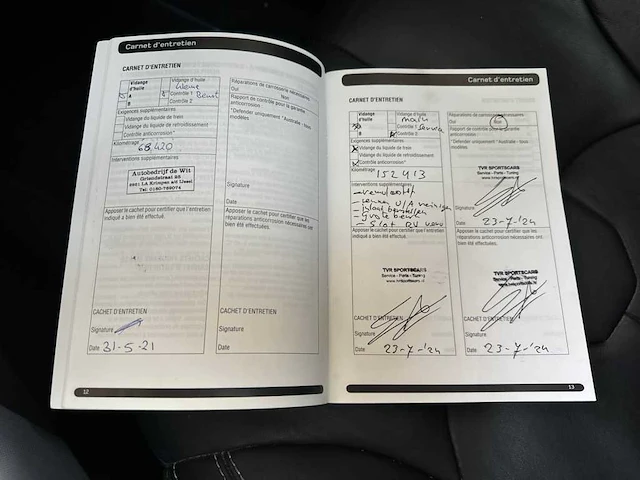 Carnet d'entretien
CARNET D'ENTRETIEN
Vidange d'huile
Vidange d'huile
A
Contrôle 1
B
Contrôle 2
Exigences supplémentaires
Vidange du liquide de frein
Vidange du liquide de refroidissement
Contrôle anticorrosion*
Kilométrage
68.420
Interventions supplémentaires
Autobedrijf de Wit
Tel. 0180-769074
Apposer le cachet pour certifier que l'entretien
indiqué a bien été effectué.
CACHET D'ENTRETIEN
Signature
Date 31-5-21
Réparations de carrosserie nécessaires
Oui Non
Rapport de contrôle pour la garantie
anticorrosion
"Defender uniquement " Australie - tous
modèles
Signature
Date
Apposer le cachet pour certifier que les
réparations anticorrosion nécessaires ont
bien été effectuées.
CACHET D'ENTRETIEN
Signature
Date
12
Carnet d'entretien
CARNET D'ENTRETIEN
Vidange d'huile
Vidange d'huile
A
Contrôle 1
B
Contrôle 2
Exigences supplémentaires
Vidange du liquide de frein
Vidange du liquide de refroidissement
Contrôle anticorrosion*
Kilométrage
152413
Interventions supplémentaires
Apposer le cachet pour certifier que l'entretien
indiqué a bien été effectué.
TVR SPORTSCARS
Service - Parts - Tuning
CACHET D'ENTRETIEN
Signature
Date 23-7-'24
Réparations de carrosserie nécessaires
Oui Non
Rapport de contrôle pour la garantie
anticorrosion
"Defender uniquement " Australie - tous
modèles
TVR SPORTSCARS
Service - Parts - Tuning
Signature
Date 23-7-'24
Apposer le cachet pour certifier que les
réparations anticorrosion nécessaires ont
bien été effectuées.
TVR SPORTSCARS
Service - Parts - Tuning
CACHET D'ENTRETIEN
Signature
Date 23-7-'24
13